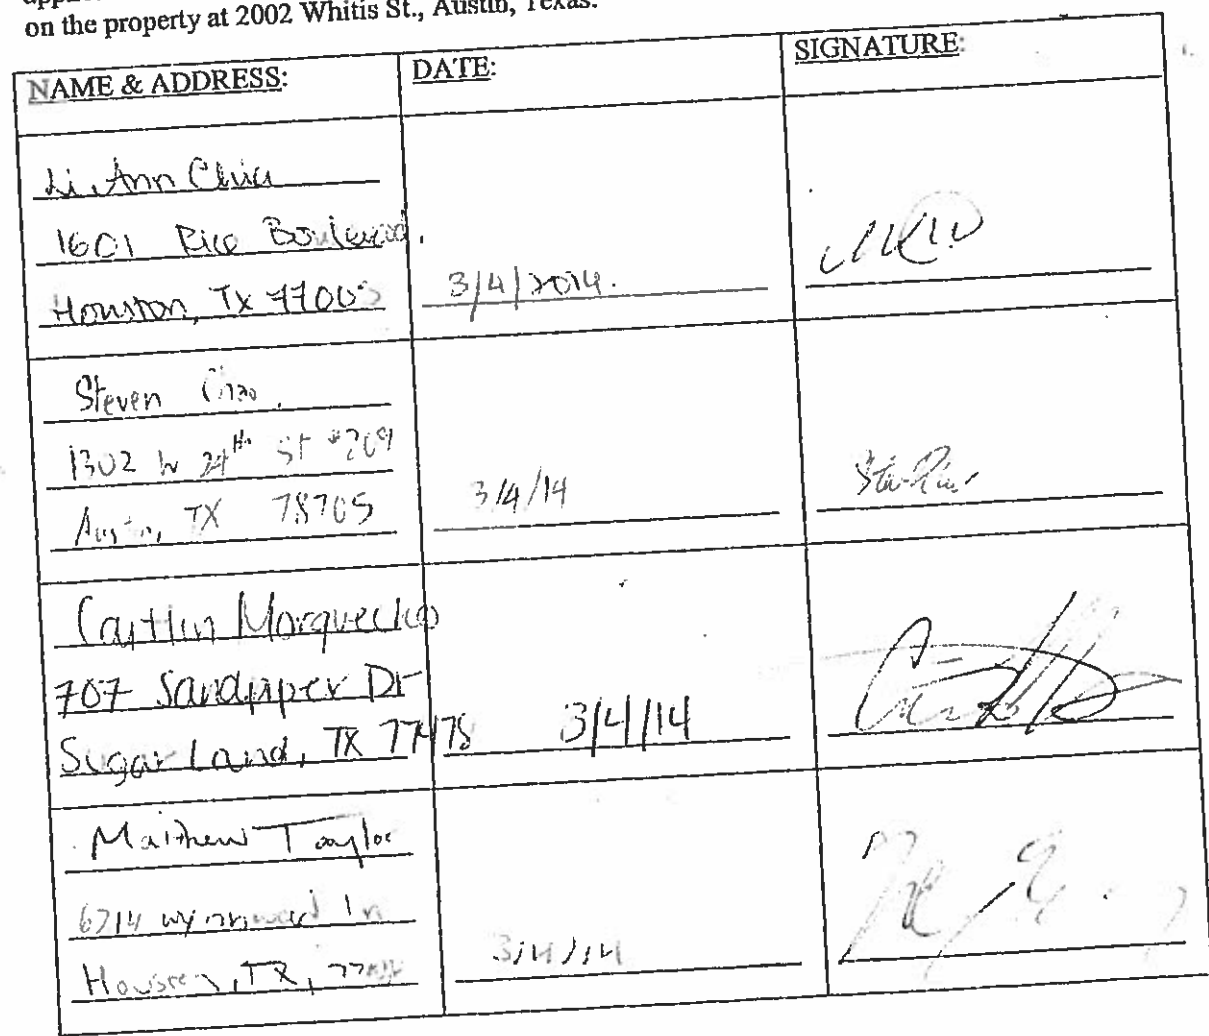 on the property at 2002 Whitis St., Austin, Texas.
NAME & ADDRESS: DATE: SIGNATURE:
Li Ann Chia
1601 Rice Boulevard.
Houston, Tx 77005 3/4/2014.
Steven
1302 W 24th St #209
Austin, TX 78705 3/4/14
Caitlin Morquecho
707 Sandpiper Dr
Sugar Land, TX 77478 3/4/14
Matthew Taylor
6714 ln
Houston, TX, 3/4/14